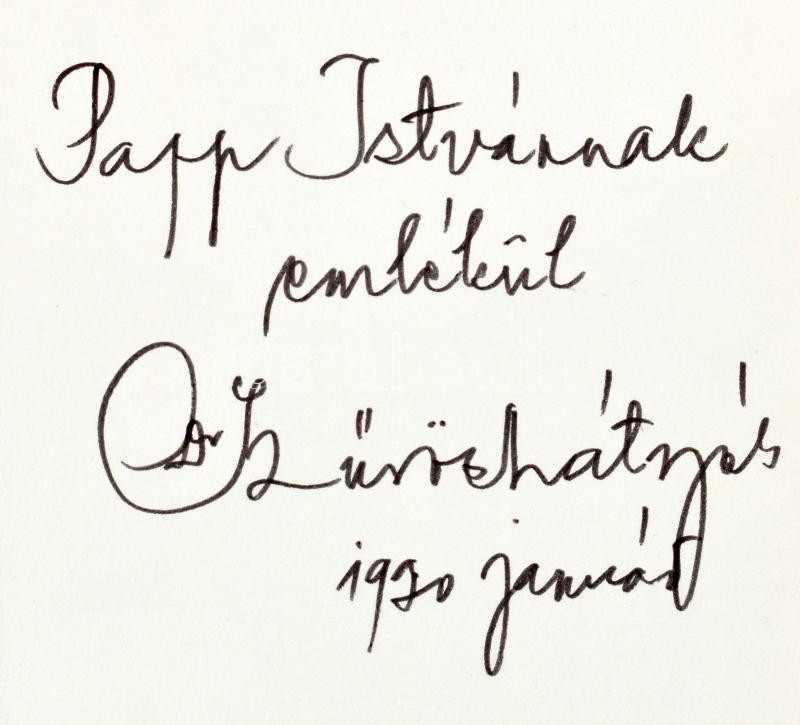 Papp Istvánnak
emlékül
Dr Szűrös Mátyás
1990 január